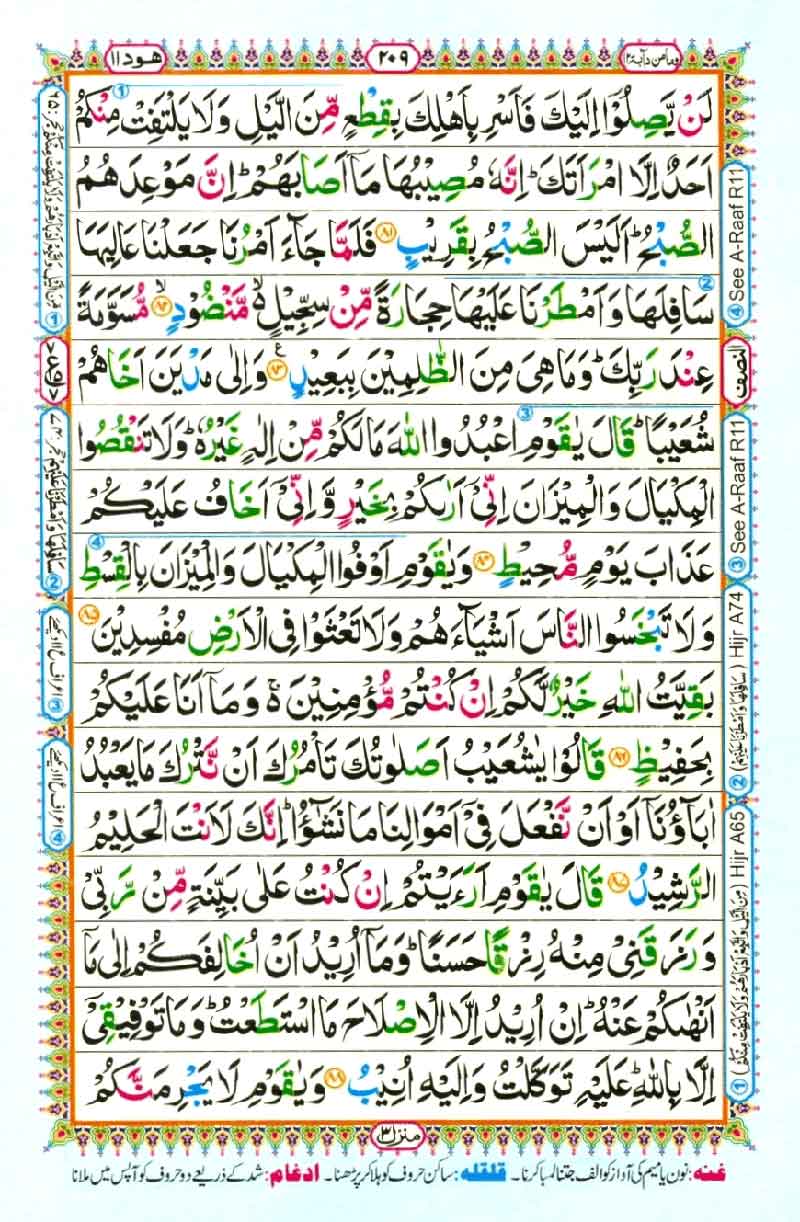 وما من دآبة ١٢
٢٠٩
هود ١١
لَنْ يَّصِلُوْۤا اِلَيْكَ فَاَسْرِ بِاَهْلِكَ بِقِطْعٍ مِّنَ الَّيْلِ وَلَا يَلْتَفِتْ مِنْكُمْ
اَحَدٌ اِلَّا امْرَاَتَكَ ؕ اِنَّهٗ مُصِيْبُهَا مَاۤ اَصَابَهُمْ ؕ اِنَّ مَوْعِدَهُمُ
الصُّبْحُ ؕ اَلَيْسَ الصُّبْحُ بِقَرِيْبٍ ﴿۸۱﴾ فَلَمَّا جَآءَ اَمْرُنَا جَعَلْنَا عَالِيَهَا
سَافِلَهَا وَاَمْطَرْنَا عَلَيْهَا حِجَارَةً مِّنْ سِجِّيْلٍ ۙ مَّنْضُوْدٍ ﴿۸۲﴾ مُّسَوَّمَةً
عِنْدَ رَبِّكَ ؕ وَمَا هِىَ مِنَ الظّٰلِمِيْنَ بِبَعِيْدٍ ﴿۸۳﴾ وَاِلٰى مَدْيَنَ اَخَاهُمْ
شُعَيْبًا ؕ قَالَ يٰقَوْمِ اعْبُدُوا اللّٰهَ مَا لَكُمْ مِّنْ اِلٰهٍ غَيْرُهٗ ؕ وَلَا تَنْقُصُوا
الْمِكْيَالَ وَالْمِيْزَانَ اِنِّىْۤ اَرٰٮكُمْ بِخَيْرٍ وَّاِنِّىْۤ اَخَافُ عَلَيْكُمْ
عَذَابَ يَوْمٍ مُّحِيْطٍ ﴿۸۴﴾ وَيٰقَوْمِ اَوْفُوا الْمِكْيَالَ وَالْمِيْزَانَ بِالْقِسْطِ
وَلَا تَبْخَسُوا النَّاسَ اَشْيَآءَهُمْ وَلَا تَعْثَوْا فِى الْاَرْضِ مُفْسِدِيْنَ ﴿۸۵﴾
بَقِيَّتُ اللّٰهِ خَيْرٌ لَّكُمْ اِنْ كُنْتُمْ مُّؤْمِنِيْنَ ۚ وَمَاۤ اَنَا عَلَيْكُمْ
بِحَفِيْظٍ ﴿۸۶﴾ قَالُوْا يٰشُعَيْبُ اَصَلٰوتُكَ تَاْمُرُكَ اَنْ نَّتْرُكَ مَا يَعْبُدُ
اٰبَآؤُنَاۤ اَوْ اَنْ نَّفْعَلَ فِىْۤ اَمْوَالِنَا مَا نَشٰٓؤُا ؕ اِنَّكَ لَاَنْتَ الْحَلِيْمُ
الرَّشِيْدُ ﴿۸۷﴾ قَالَ يٰقَوْمِ اَرَءَيْتُمْ اِنْ كُنْتُ عَلٰى بَيِّنَةٍ مِّنْ رَّبِّىْ
وَرَزَقَنِىْ مِنْهُ رِزْقًا حَسَنًا ؕ وَمَاۤ اُرِيْدُ اَنْ اُخَالِفَكُمْ اِلٰى مَاۤ
اَنْهٰٮكُمْ عَنْهُ ؕ اِنْ اُرِيْدُ اِلَّا الْاِصْلَاحَ مَا اسْتَطَعْتُ ؕ وَمَا تَوْفِيْقِىْۤ
اِلَّا بِاللّٰهِ ؕ عَلَيْهِ تَوَكَّلْتُ وَاِلَيْهِ اُنِيْبُ ﴿۸۸﴾ وَيٰقَوْمِ لَا يَجْرِمَنَّكُمْ
النصف
④ See A-Raaf R11
③ See A-Raaf R11
② (سَافِلَهَا وَاَمْطَرْنَا عَلَيْهِمْ) Hijr A74
① (مِنَ الَّيْلِ وَاتَّبِعْ اَدْبَارَهُمْ وَلَا يَلْتَفِتْ مِنْكُمْ) Hijr A65
منزل ٣
غنه: نون یا میم کی آواز کو الف جتنا لمبا کرنا۔ قلقله: ساکن حروف کو ہلا کر پڑھنا۔ ادغام: شد کے ذریعے دو حروف کو آپس میں ملانا